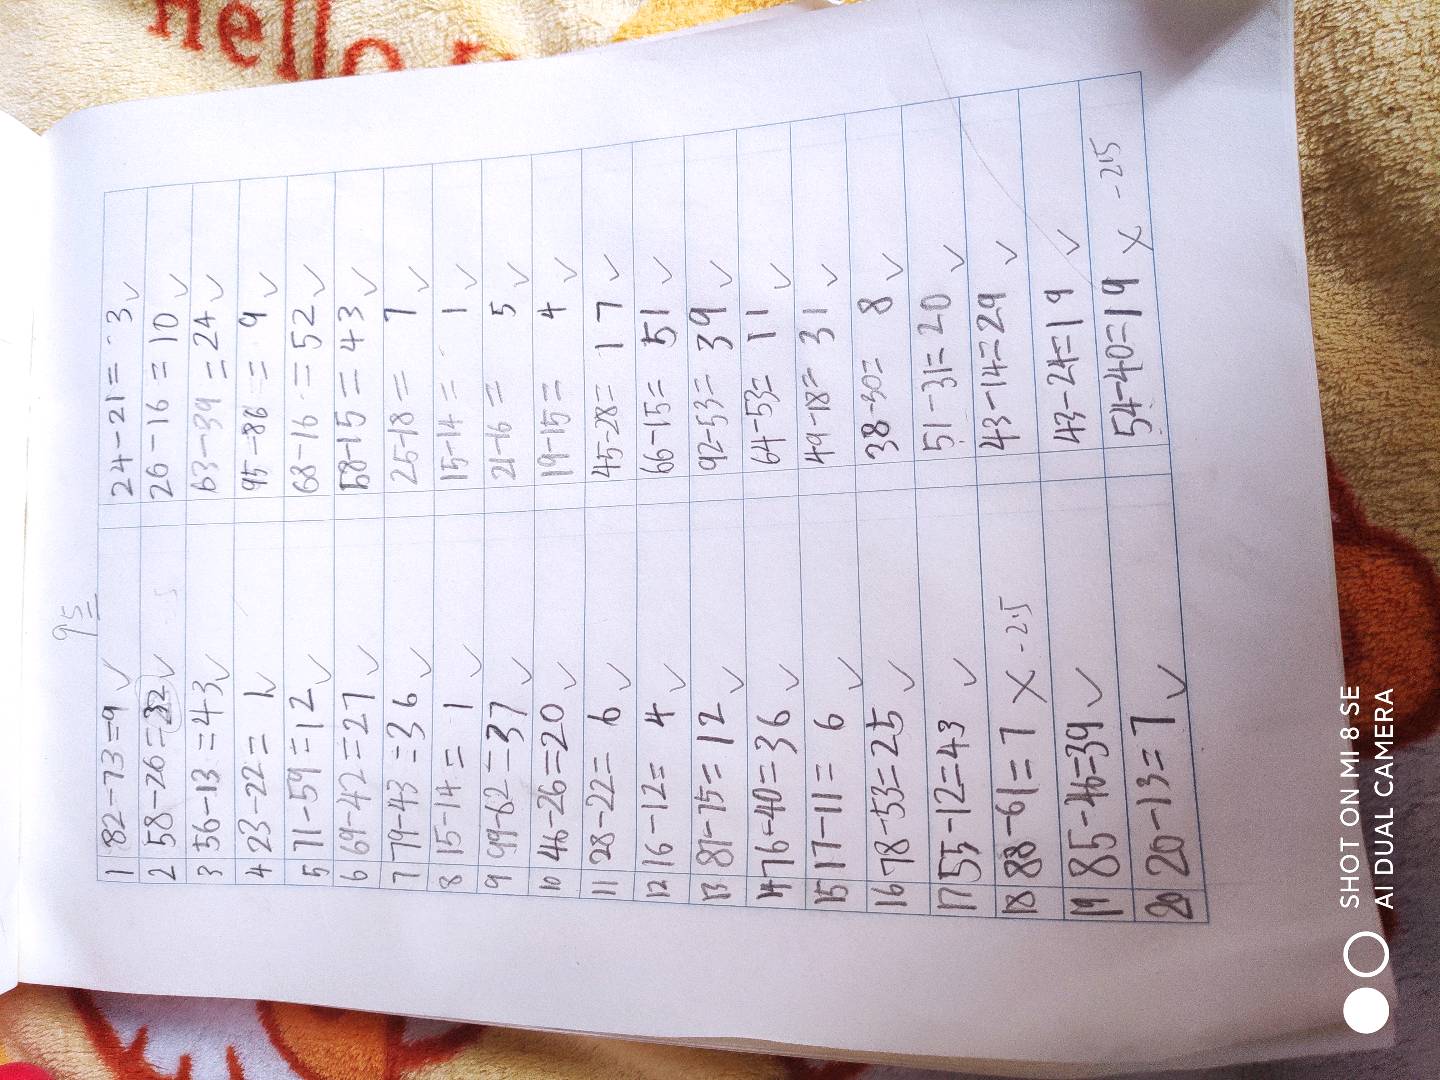 Hello
95
1 82-73=9 ✓ 24-21= 3 ✓
2 58-26=32 ✓ 26-16=10 ✓
3 56-13=43 ✓ 63-39=24 ✓
4 23-22= 1 ✓ 95-86= 9 ✓
5 71-59=12 ✓ 68-16=52 ✓
6 69-42=27 ✓ 58-15=43 ✓
7 79-43=36 ✓ 25-18= 7 ✓
8 15-14= 1 ✓ 15-14= 1 ✓
9 99-62=37 ✓ 21-16= 5 ✓
10 46-26=20 ✓ 19-15= 4 ✓
11 28-22= 6 ✓ 45-28= 17 ✓
12 16-12= 4 ✓ 66-15= 51 ✓
13 87-75=12 ✓ 92-53=39 ✓
14 76-40=36 ✓ 64-53= 11 ✓
15 17-11= 6 ✓ 49-18= 31 ✓
16 78-53=25 ✓ 38-30= 8 ✓
17 55-12=43 ✓ 51-31=20 ✓
18 88-61=7 × -2.5 43-14=29 ✓
19 85-46=39 ✓ 43-24=19 ✓
20 20-13=7 ✓ 54-40=19 × -2.5
SHOT ON MI 8 SE
AI DUAL CAMERA